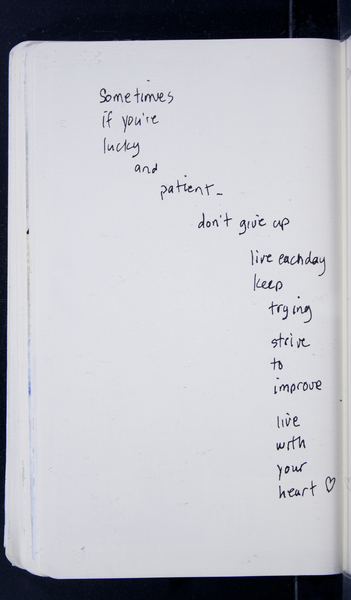 Sometimes
if you're
lucky
and
patient_
don't give up
live each day
keep
trying
strive
to
improve
live
with
your
heart ♡